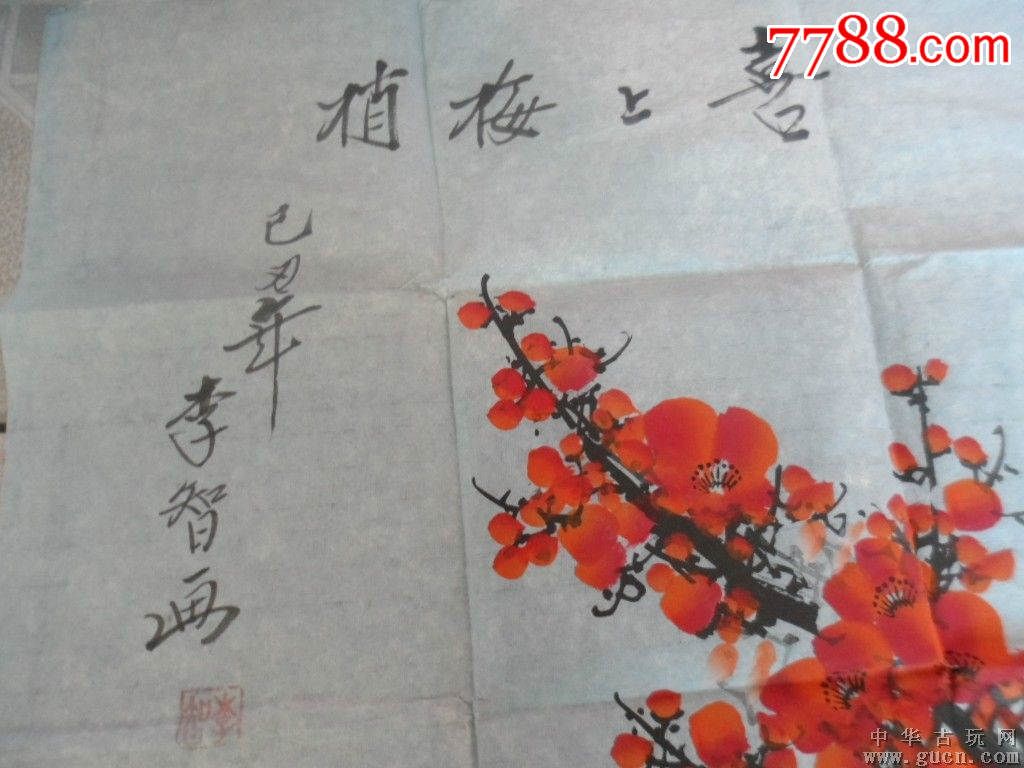 7788.com
喜上梅梢
己丑年
李智画
中华古玩网
www.gucn.com